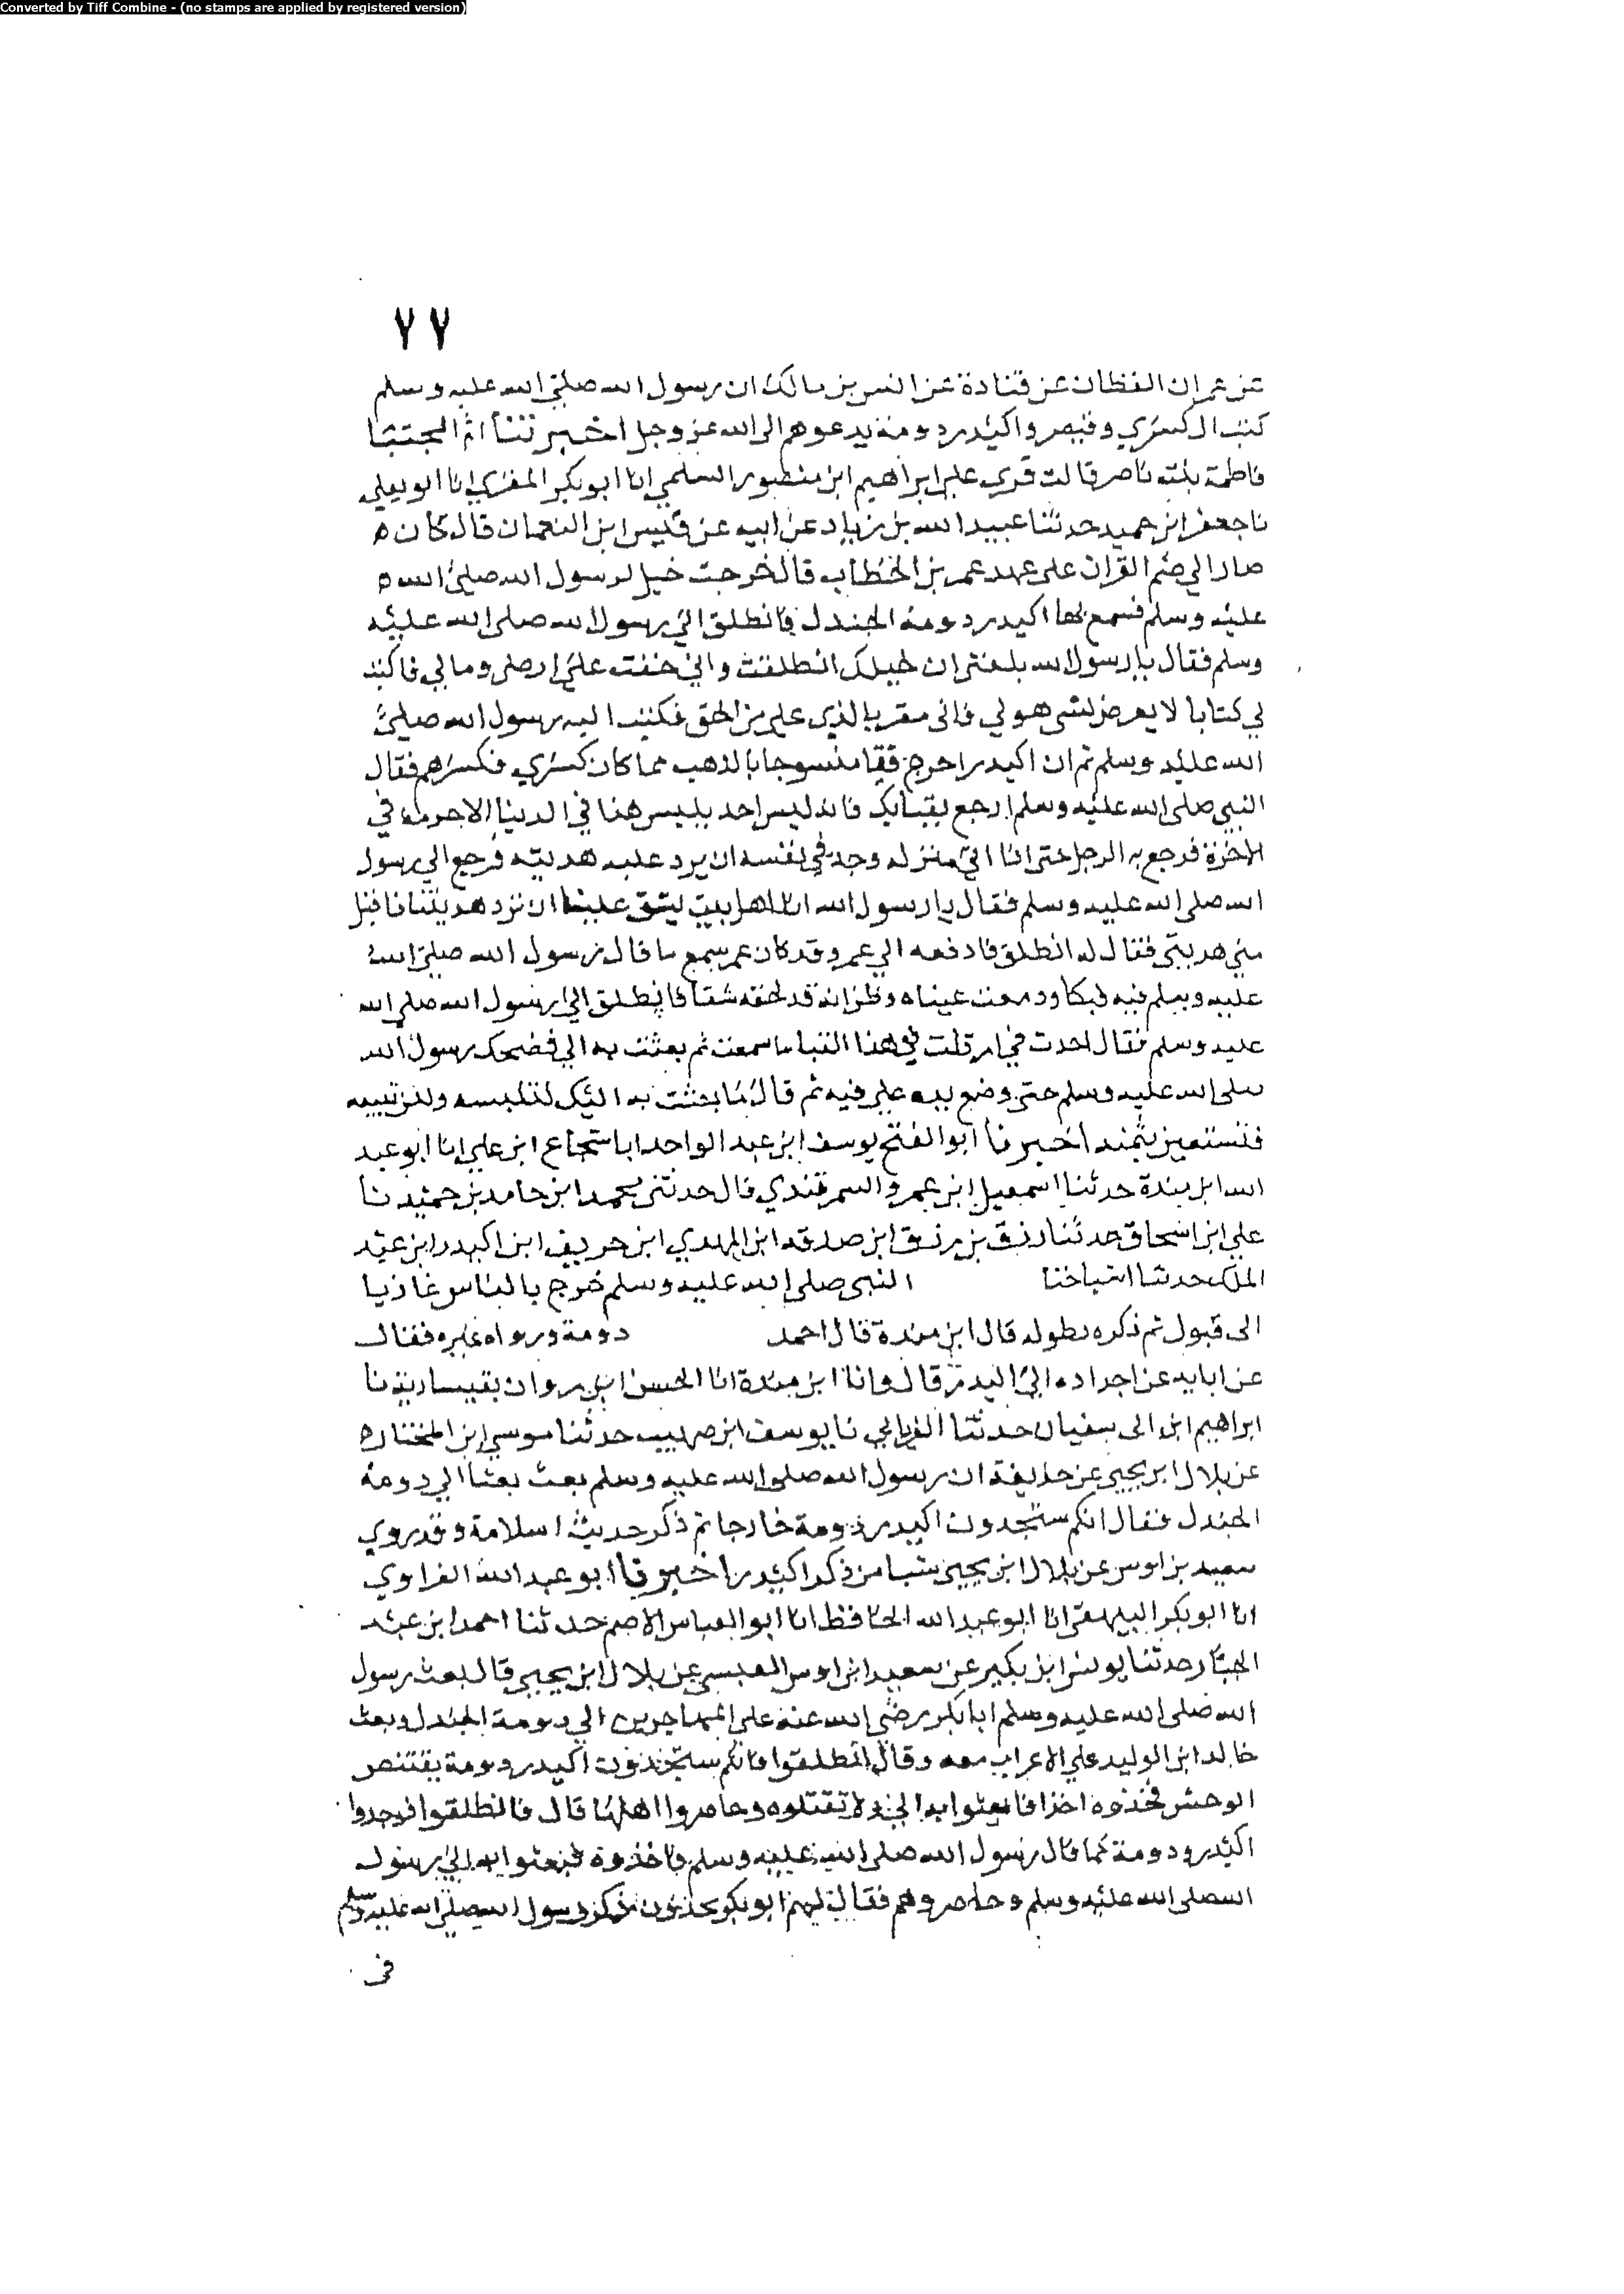 Converted by Tiff Combine - (no stamps are applied by registered version)
٧٧
عن عمران القطان عن قتادة عن انس بن مالك ان رسول الله صلى الله عليه وسلم
كتب الى كسرى وقيصر واكيدر دومة يدعوهم الى الله عز وجل اخبرتنا ام المجتبا
فاطمة بنت ناصر قالت قري على ابراهيم ابن منصور السلمي انا ابو بكر المقري انا ابو يعلى
نا جعفر ابن حميد حدثنا عبيد الله بن زياد عن ابيه عن قيس ابن النعمان قال كان ه
صار الي ضم القران على عهد عمر بن الخطاب قال خرجت خيل لرسول الله صلى الله ه
عليه وسلم فسمع بها اكيدر دومة الجندل فانطلق الي رسول الله صلى الله عليه
وسلم فقال يا رسول الله بلغني ان خيلك انطلقت واني خفت علي ارضي ومالي فاكتب
لي كتابا لا يعرض لشي هو لي فاني مقر بالذي علي من الحق فكتب اليه رسول الله صلى
الله عليه وسلم ثم ان اكيدر اخرج قبا منسوجا بالذهب مما كان كسرى فكسرهم فقال
النبي صلى الله عليه وسلم ارجع بقبايك فانه ليس احد يلبس هذا في الدنيا الا حرمه في
الاخرة فرجع به الرجل حتى اذا اتى منزله وجد في نفسه ان يرد عليه هديته فرجع الي رسول
الله صلى الله عليه وسلم فقال يا رسول الله انا اهل بيت يشق علينا ان نرد هديتنا فاقبل
مني هديتي فقال له انطلق فادفعه الي عمر وقد كان عمر سمع ما قال رسول الله صلى الله
عليه وسلم فيه فبكا ودمعت عيناه وظن انه قد لحقه شقا فانطلق الي رسول الله صلى الله
عليه وسلم فقال احدث في امر قلت في هذا القبا ما سمعت ثم بعثت به الي فضحك رسول الله
صلى الله عليه وسلم حتى وضع يده على فيه ثم قال ما بعثت به اليك لتلبسه ولكن تبيعه
فتستعين بثمنه اخبرنا ابو الفتح يوسف ابن عبد الواحد انا شجاع ابن علي انا ابو عبد
الله ابن مندة حدثنا اسمعيل ابن عمرو السمرقندي قال حدثني محمد ابن حامد بن حميد نا
علي ابن اسحاق حدثنا رزق بن رزق ابن صدقه ابن المهدي ابن حريف ابن اكيدر ابن عبد
الملك حدثنا اشياخنا النبي صلى الله عليه وسلم خرج بالناس غازيا
الى قبول ثم ذكره بطوله قال ابن مندة قال احمد دومة ورواه غيره فقال
عن ابايه عن اجداده الي اكيدر قال وانا ابن مندة انا الحسن ابن مروان بقيسارية نا
ابراهيم ابن ابي سفيان حدثنا الفريابي نا يوسف ابن صهيب حدثنا موسى ابن المختار ه
عن بلال ابن يحيى عن حذيفة ان رسول الله صلى الله عليه وسلم بعث بعثا الي دومة
الجندل فقال انكم ستجدون اكيدر دومة خارجا ثم ذكر حديث اسلامة وقد روي
سعيد بن اوس عن بلال ابن يحيى شيا من ذكر اكيدر اخبرنا ابو عبد الله الفراوي
انا ابو بكر البيهقي انا ابو عبد الله الحافظ انا ابو العباس الاصم حدثنا احمد ابن عبد
الجبار حدثنا يونس ابن بكير عن سعيد ابن اوس العبسي عن بلال ابن يحيى قال بعث رسول
الله صلى الله عليه وسلم ابا بكر رضي الله عنه علي المهاجرين الي دومة الجندل وبعث
خالد ابن الوليد علي الاعراب معه وقال انطلقوا فانكم ستجدون اكيدر دومة يقتنص
الوحش فخذوه اخذا فابعثوا به الي ولا تقتلوه وحاصروا اهلها قال فانطلقوا فوجدوا
اكيدر دومة كما قال رسول الله صلى الله عليه وسلم فاخذوه فبعثوا به الي رسول
الله صلى الله عليه وسلم وحاصروهم فقال لهم ابو بكر تجدون ذكر رسول الله صلى الله عليه وسلم
في